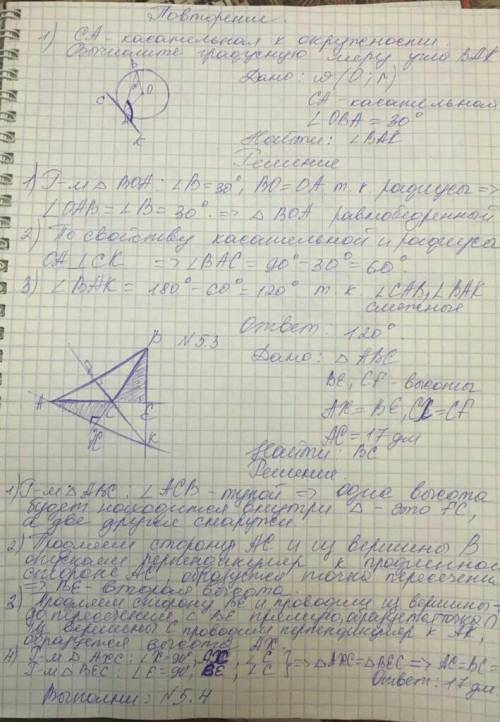 Повторение.
1) CA - касательная к окружности
Вычислите градусную меру угла BAK
Дано: ω (O; r)
CA - касательная
∠OBA = 30°
Найти: ∠BAK
Решение
B
O
C
A
K
1) Р-м △ BOA: ∠B = 30°, BO = OA т.к. радиусы =>
∠OAB = ∠B = 30° => △ BOA равнобедренный
2) По свойству касательной и радиуса
OA ∠ CK => ∠BAC = 90° - 30° = 60°
3) ∠BAK = 180° - 60° = 120° т.к. ∠CAB, ∠BAK
смежные
Ответ: 120°
N 5.3
Дано: △ ABC
BE, CF - высоты
AX = BE, CX = CF
AC = 17 дм
Найти: BC
Решение
B
F
A
C
E
X
K
1) Р-м △ ABC: ∠ACB - тупой => одна высота
будет находиться внутри △ - это FC,
а две другие снаружи.
2) Продляем сторону AC и из вершины B
опускаем перпендикуляр к продленной
стороне AC, образуется точка пересечения
=> BE - вторая высота
3) Продляем сторону BE и проводим из вершины
до пересечения с BE прямую,
из вершины C проводим перпендикуляр к AK,
образуется высота AX
4) Р-м △ AXC: ∠X = 90°, CX, ∠C
Р-м △ BEC: ∠E = 90°, BE, ∠C } => △ AXC = △ BEC => AC = BC =
Ответ: 17 дм
Выполни: N 5.4